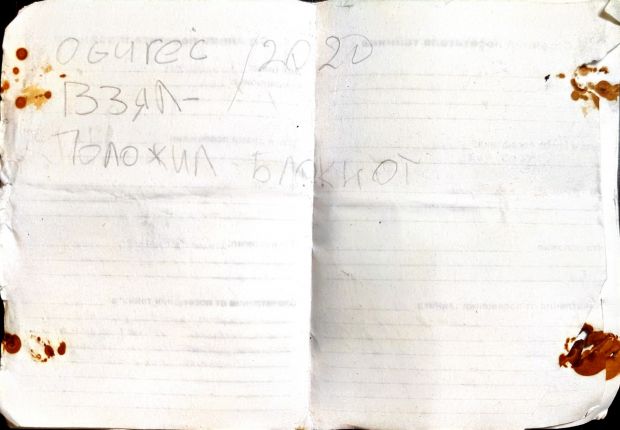 OGureC /2020
ВЗЯЛ-
ПОЛОЖИЛ БЛОКНОТ